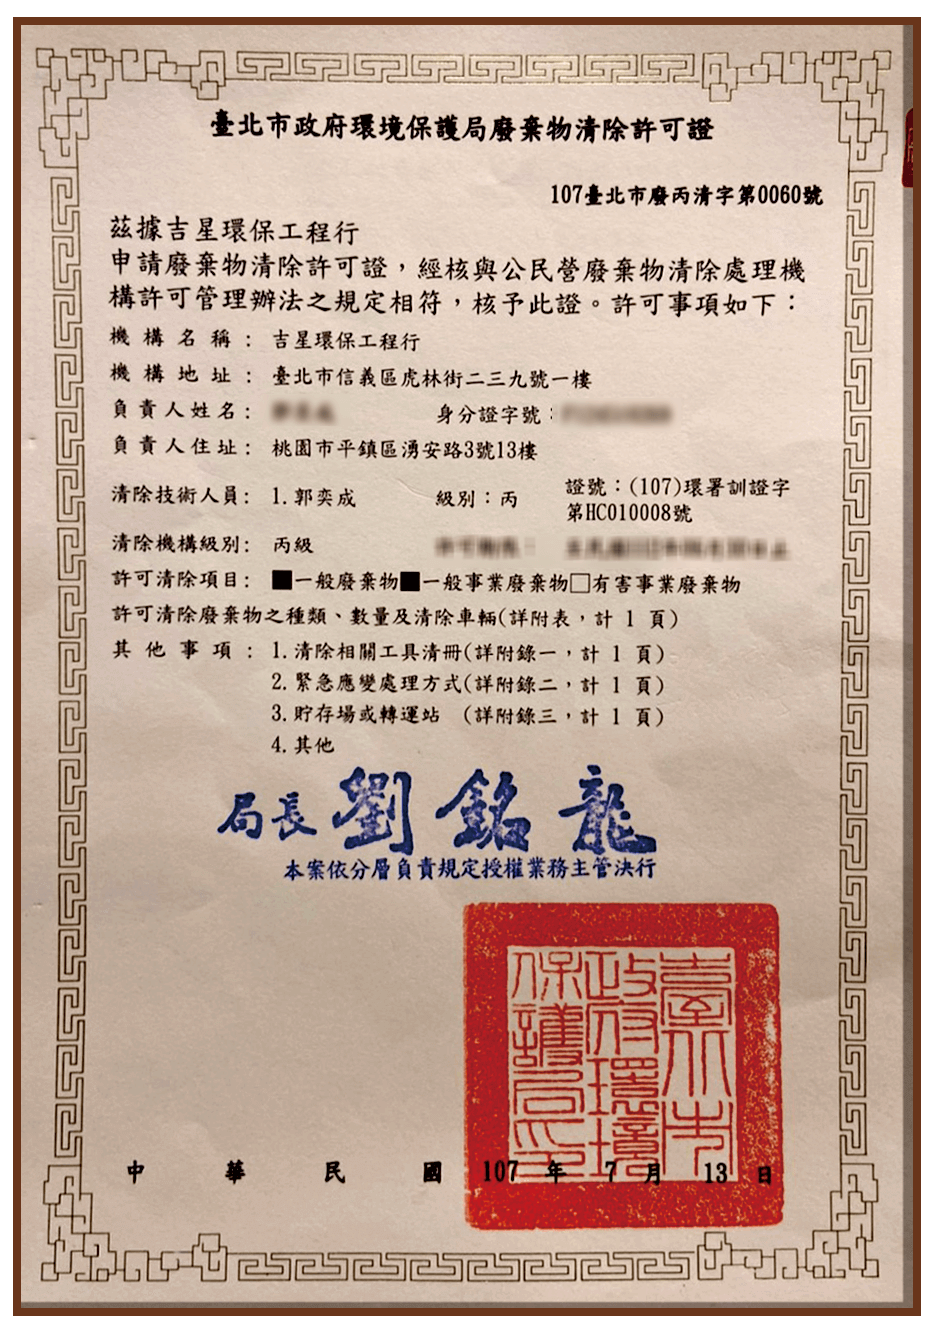 臺北市政府環境保護局廢棄物清除許可證
107臺北市廢丙清字第0060號
茲據吉星環保工程行
申請廢棄物清除許可證，經核與公民營廢棄物清除處理機
構許可管理辦法之規定相符，核予此證。許可事項如下：
機構名稱：吉星環保工程行
機構地址：臺北市信義區虎林街二三九號一樓
負責人姓名： 身分證字號：
負責人住址：桃園市平鎮區湧安路3號13樓
清除技術人員：1.郭奕成 級別：丙 證號：(107)環署訓證字
第HC010008號
清除機構級別：丙級
許可清除項目：■一般廢棄物■一般事業廢棄物□有害事業廢棄物
許可清除廢棄物之種類、數量及清除車輛(詳附表，計 1 頁)
其他事項：1.清除相關工具清冊(詳附錄一，計 1 頁)
2.緊急應變處理方式(詳附錄二，計 1 頁)
3.貯存場或轉運站 (詳附錄三，計 1 頁)
4.其他
局長 劉銘龍
本案依分層負責規定授權業務主管決行
臺北市
政府環境
保護局印
中華民國 107 年 7 月 13 日